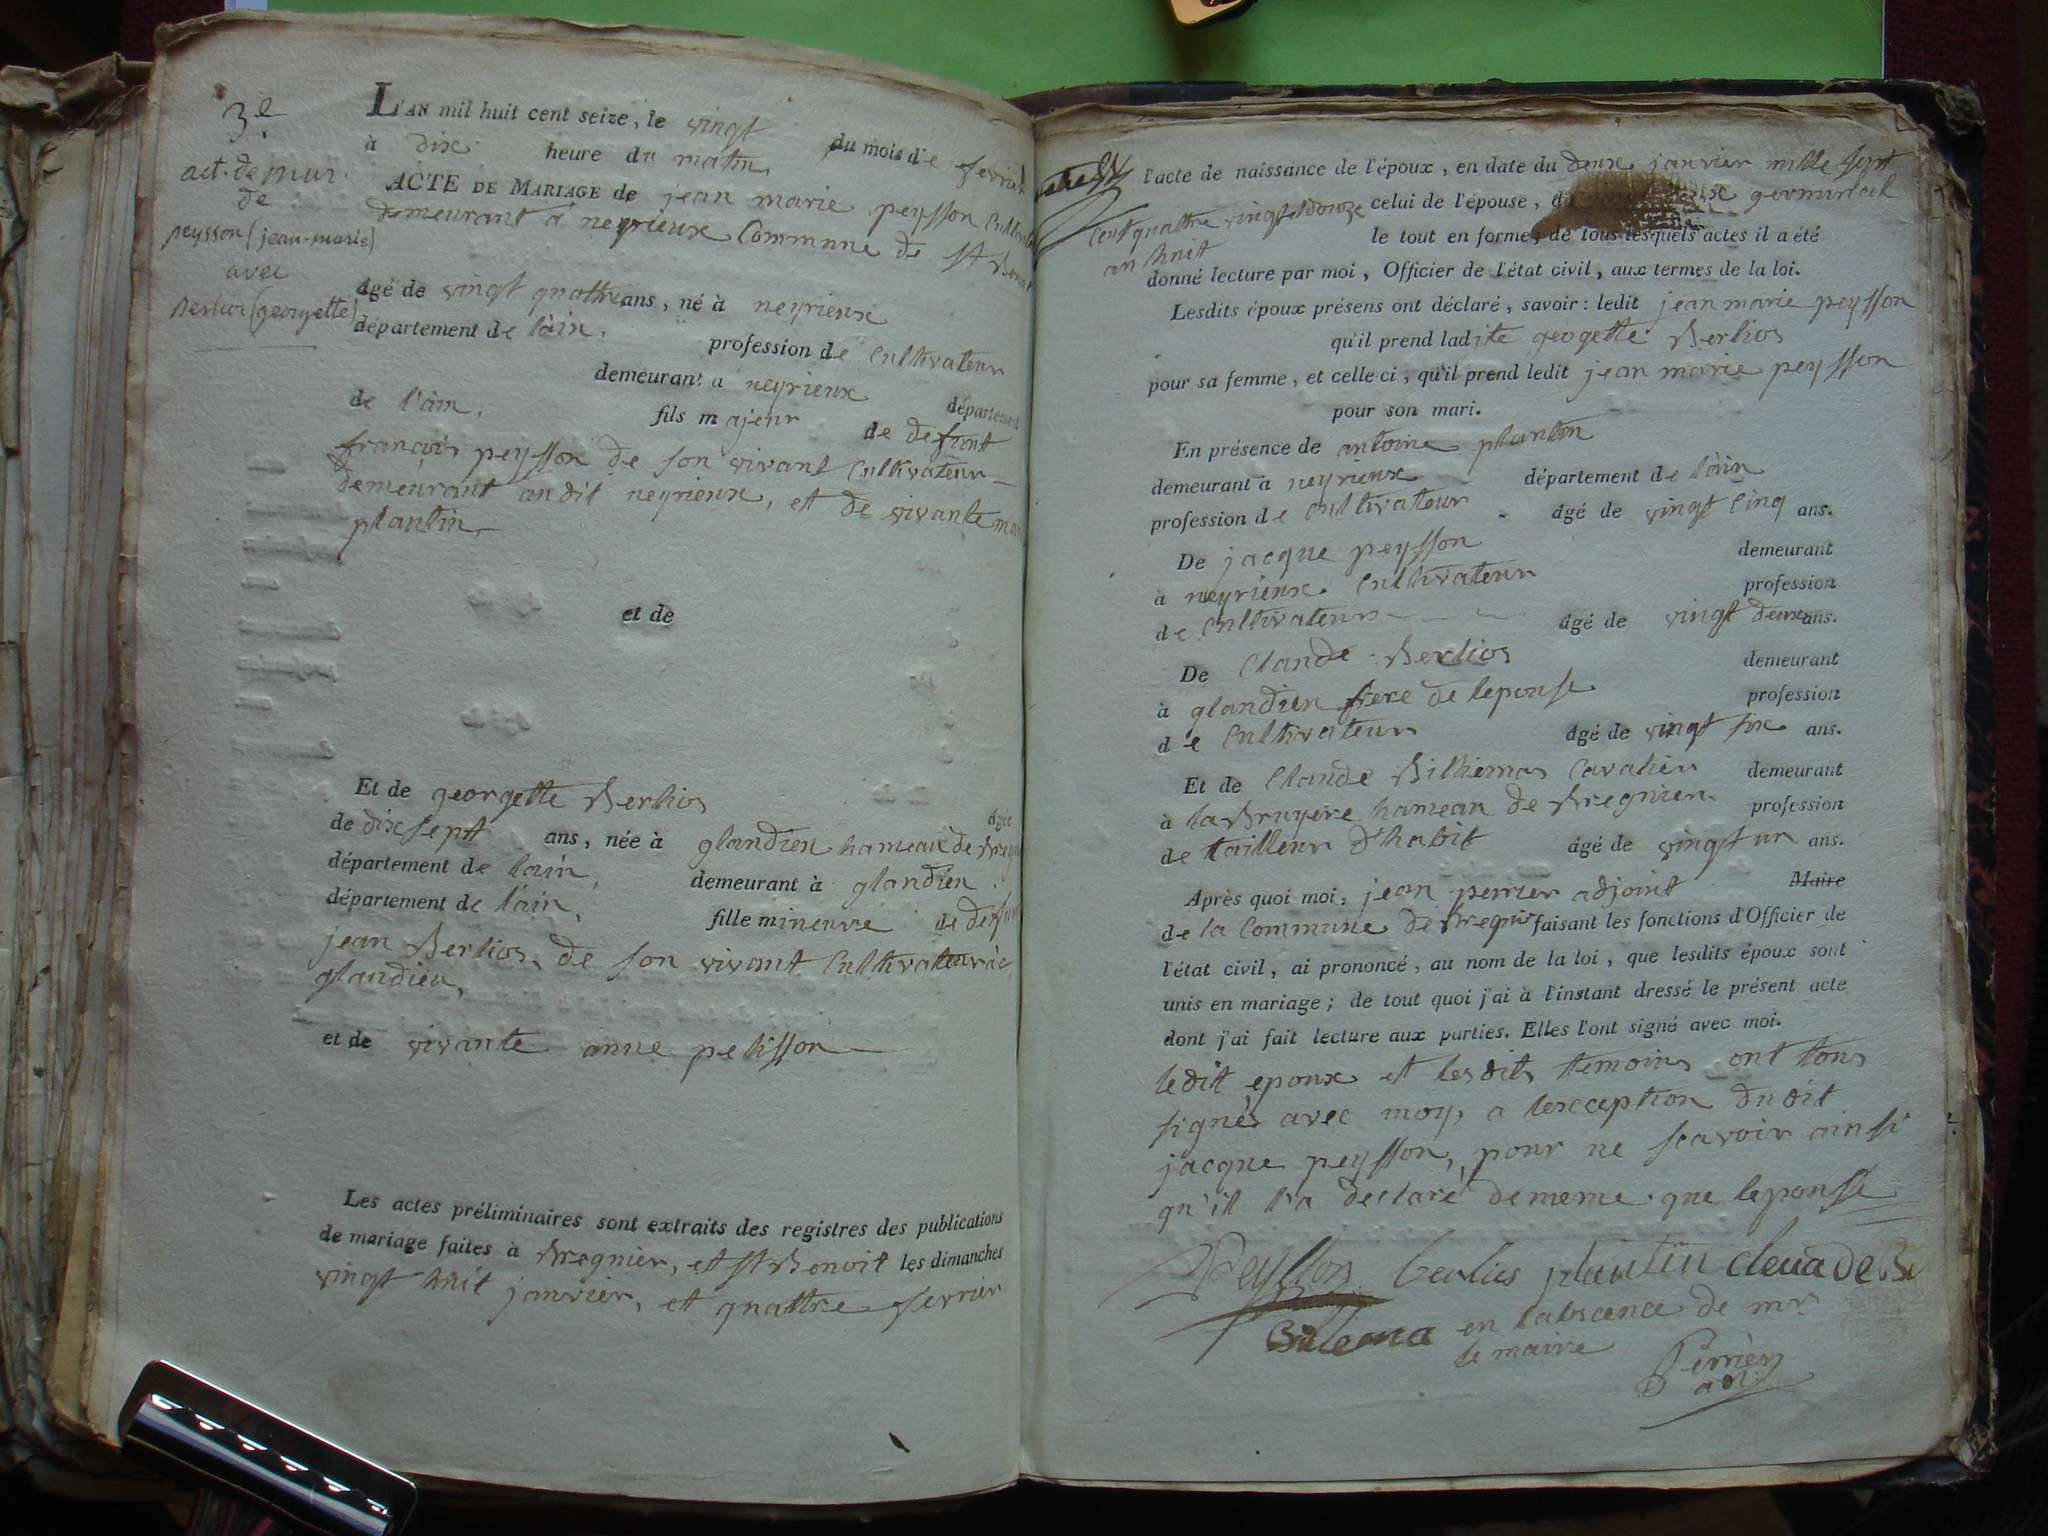 3e
act. de mar.
de
peysson (jean-marie)
avec
Berlios (georgette)
L'AN mil huit cent seize, le vingt du mois de fevrier
à dix heure du matin,
ACTE DE MARIAGE de jean marie peysson Cultivateur
demeurant à neyrieux Commune de St Benoit
âgé de vingt quattre ans, né à neyrieux
département de l'ain, profession de Cultivateur
demeurant à neyrieux département
de l'ain, fils majeur de defunt
françois peysson de son vivant Cultivateur
demeurant audit neyrieux, et de vivante
plantin,
et de
Et de georgette Berlios âgée
de dix sept ans, née à glandieu hameau de Bregnier
département de lain, demeurant à glandieu
département de l'ain, fille mineure de defunt
jean Berlios de son vivant Cultivateur à
glandieu,
et de vivante anne pelisson
Les actes préliminaires sont extraits des registres des publications
de mariage faites à Bregnier, et St Benoit les dimanches
vingt huit janvier, et quattre fevrier
l'acte de naissance de l'époux, en date du deux janvier mille sept
cent quattre vingt douze celui de l'épouse, germinal
an huit le tout en forme, de tous lesquels actes il a été
donné lecture par moi, Officier de l'état civil, aux termes de la loi.
Lesdits époux présens ont déclaré, savoir : ledit jean marie peysson
qu'il prend ladite geogette Berlios
pour sa femme, et celle ci, qu'il prend ledit jean marie peysson
pour son mari.
En présence de antoine plantin
demeurant à neyrieux département de l'ain
profession de Cultivateur âgé de vingt Cinq ans.
De jacque peysson demeurant
à neyrieux Cultivateur profession
de Cultivateur âgé de vingt deux ans.
De Claude Berlios demeurant
à glandieu frere de lepouse profession
de Cultivateur âgé de vingt six ans.
Et de Claude Bilhemas Cavalier demeurant
à la Bruyere hameau de Bregnier profession
de tailleur d'habit âgé de vingt un ans.
Après quoi moi, jean perrier adjoint Maire
de la Commune de Bregnier faisant les fonctions d'Officier de
l'état civil, ai prononcé, au nom de la loi, que lesdits époux sont
unis en mariage ; de tout quoi j'ai à l'instant dressé le présent acte
dont j'ai fait lecture aux parties. Elles l'ont signé avec moi.
ledit epoux et lesdits temoins ont tous
signés avec moy, a lexception dudit
jacque peysson, pour ne scavoir ainsi
qu'il l'a declaré de meme que lepouse
Peysson Berlios plantin
Bilema en labscence de mr
le maire Perrier
adj.